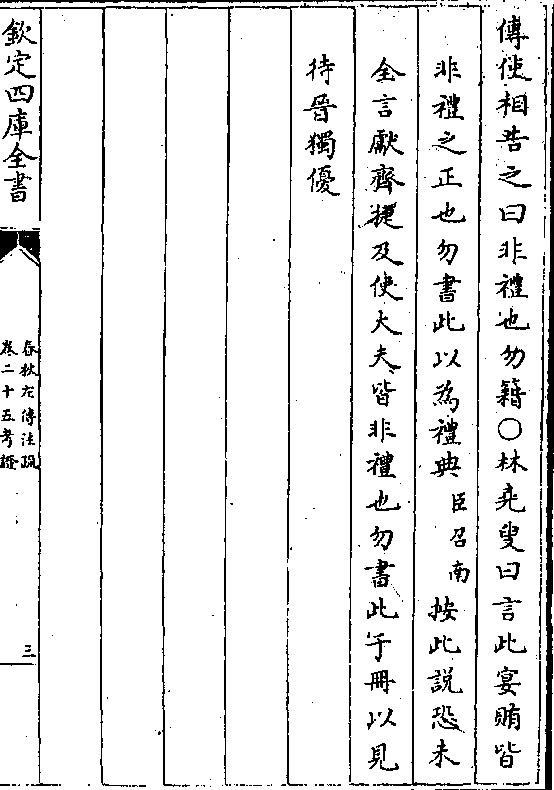 傳使相告之曰非禮也勿籍○林堯叟曰言此宴賄皆
非禮之正也勿書此以為禮典臣召南按此説恐未
全言獻齊捷及使大夫皆非禮也勿書此于冊以見
待晉獨優
欽定四庫全書
春秋左傳注疏
卷二十五考證
三